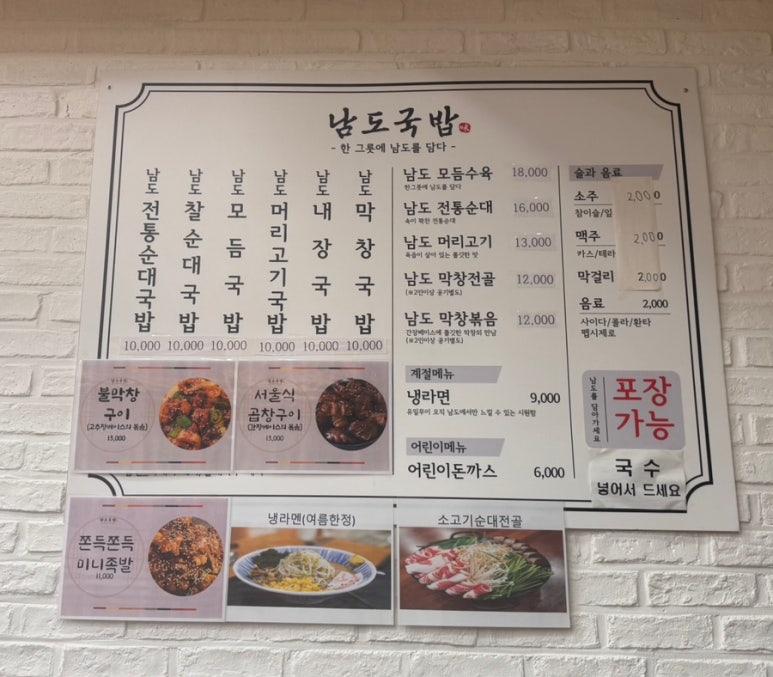 남도국밥
- 한 그릇에 남도를 담다 -
남도 전통순대국밥
10,000
남도 찰순대국밥
10,000
남도 모듬국밥
10,000
남도 머리고기국밥
10,000
남도 내장국밥
10,000
남도 막창국밥
10,000
남도 모듬수육 18,000
한그릇에 남도를 담다
남도 전통순대 16,000
속이 꽉찬 전통순대
남도 머리고기 13,000
육즙이 살아 있는 쫄깃한 맛
남도 막창전골 12,000
(※2인이상 공기별도)
남도 막창볶음 12,000
간장베이스에 쫄깃한 막창의 만남
(※2인이상 공기별도)
계절메뉴
냉라면 9,000
유일무이 오직 남도에서만 느낄 수 있는 시원함
어린이메뉴
어린이돈까스 6,000
술과 음료
소주 2,000
참이슬/잎
맥주 2,000
카스/테라
막걸리 2,000
음료 2,000
사이다/콜라/환타
펩시제로
남도를 담아가세요
포장
가능
국수
넣어서 드세요
불막창
구이
(고추장베이스의 볶음)
13,000
서울식
곱창구이
(간장베이스의 볶음)
13,000
쫀득쫀득
미니족발
11,000
냉라멘(여름한정)
소고기순대전골